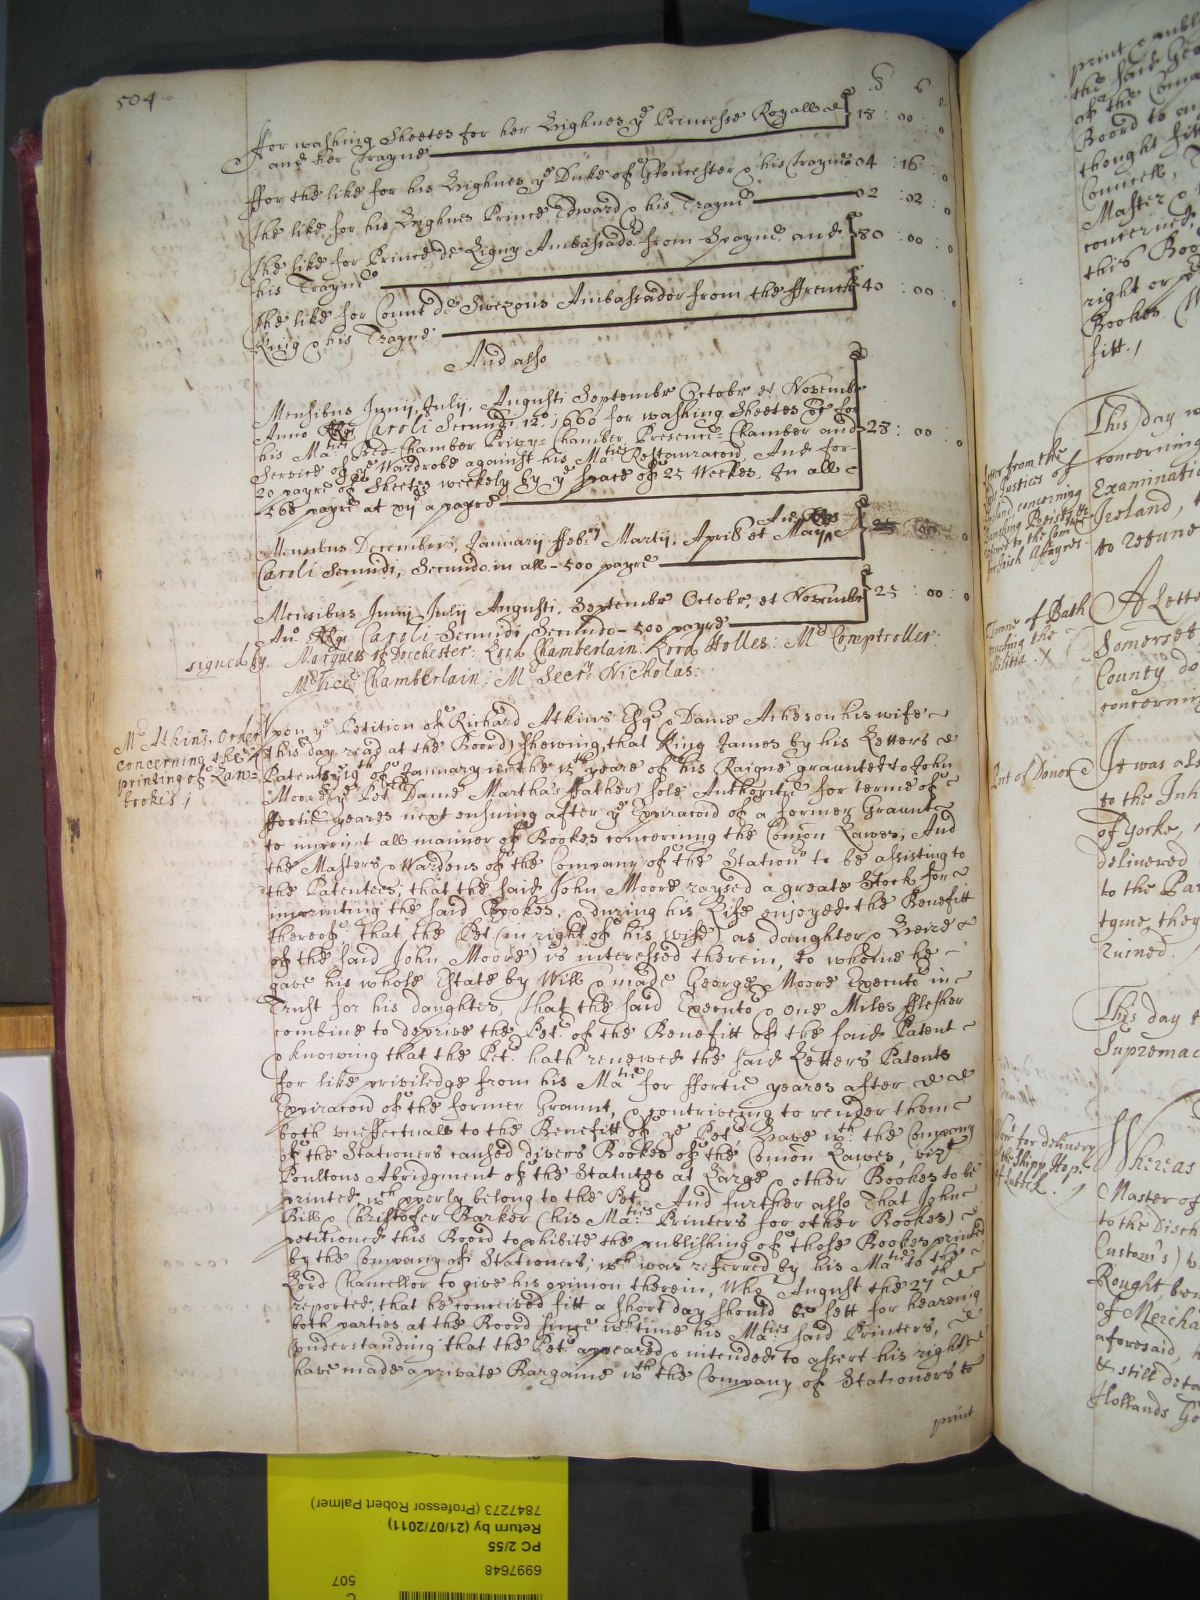 504
For washing Sheetes for her Highnes ye Princesse Royall
and her Trayne 18 : 00 : 0
ffor the like for his Highnes ye Duke of Gloucester & his Trayne 04 : 16 : 0
The like for his Highnes Prince Edward & his Trayne 02 : 02 : 0
The like for Prince de Ligny Ambassador from Spayne and
his Trayne 80 : 00 : 0
The like for Count de Swezons Ambassador from the ffrench
King & his Trayne 40 : 00 : 0
And also
Mensibus Junij, Julij, Augusti Septembr Octobr et Novembr
Anno Caroli Secundi 12o. 1660 for washing Sheetes for
his Maties Bed-Chamber Privy-Chamber, Presence-Chamber and 28 : 00 : 0
Service of ye Wardrobe against his Maties Restauracon, And for
20 payre of Sheetes weekly by ye space of 25 Weekes, In all
568 payre at xij a payre
Mensibus Decembris, January ffebry Martij, Aprill et Maij
Caroli Secundi, Secundo in all - 500 payre
Mensibus Junij July Augusti, Septembr Octobr, et Novembr 25 : 00 : 0
Ano. Caroli Secundi Secundo - 500 payre
signed by. Marquess of Dorchester: Lord Chamberlain: Lord Holles: Mr Comptroller:
Mr Vice Chamberlain: Mr Secry Nicholas:
Mr Atkins, Order
concerning the
printing of Law-
bookes /
Upon ye Petition of Richard Atkins Esqr & Dame his wife
(this day read at the Board) shewing, that King James by his Letters
Patents ye 19th of January in the 15th yeare of his Raigne graunted to John
Moore (ye Petrs Dame Martha's ffather) sole Authoritie for terme of
ffortie yeares next ensuing after ye Expiracon of a former Graunt
to imprint all manner of Bookes concerning the Comon Lawes; And
the Masters & Wardens of the Company of the Stationrs to be assisting to
the Patentees; that the said John Moore raysed a greate Stock for
imprinting the said Bookes, & during his Life enjoyed the Benefitt
thereof that the Petr (in right of his wife) as daughter & Heire
of the said John Moore) is interessed therein, to whome he
gave his whole Estate by Will & made George Moore Executor in
Trust for his daughter, that the said Executor & one Miles fflesher
combine to deprive the Petr of the Benefitt of the said Patent
& knowing that the Petr hath renewed the said Letters Patents
for like priviledge from his Matie for ffortie yeares after
Expiracon of the former Graunt, & contriveing to render them
both uneffectuall to the Benefitt of ye Petr, Have wth the Company
of the Stationers caused divers Bookes of the Comon Lawes, vizt
Poultons Abridgment of the Statutes at Large & other Bookes to be
printed wch pperly belong to the Petr And further also That John
Bill & Christofer Barker (his Maties Printers for other Bookes)
petitioned this Board to phibite the publishing of those Bookes printed
by the Company of Stationers, wch was referred by his Matie to the
Lord Chancellor to give his opinion therein, Who August the 27th
reported, that he conceived fitt a short day should be sett for heareing
both parties at the Board since wch time his Maties said Printers,
Understanding that the Petr appeared & intended to assert his right
have made a private Bargaine wth the Company of Stationers to
print
print & publ
the said Geo
of the Comp
Board to a
thought fitt
Councell,
Master &
concerned
this Boo
right or
Bookes
fitt. /
from the
Justices of
concerning
to the Com
for Irish Affayres
This day w
concerning
Examinatio
Ireland,
to returne
Towne of Bath
touching the
Militia. /
A Lette
Somerset
County do
concerning
Port of Doncr
It was als
to the Inh
of Yorke,
delivered
to the Pa
tyme, they
ruined.
This day t
Supremac
for delivery
of the Shipp Hop
of Lubeck. /
Whereas
Master of
to the Disch
Custom's) w
Bought
of Mercha
aforesaid,
& still deta
Hollands Go
507
6997648
PC 2/55
Return by (21/07/2011)
7847273 (Professor Robert Palmer)